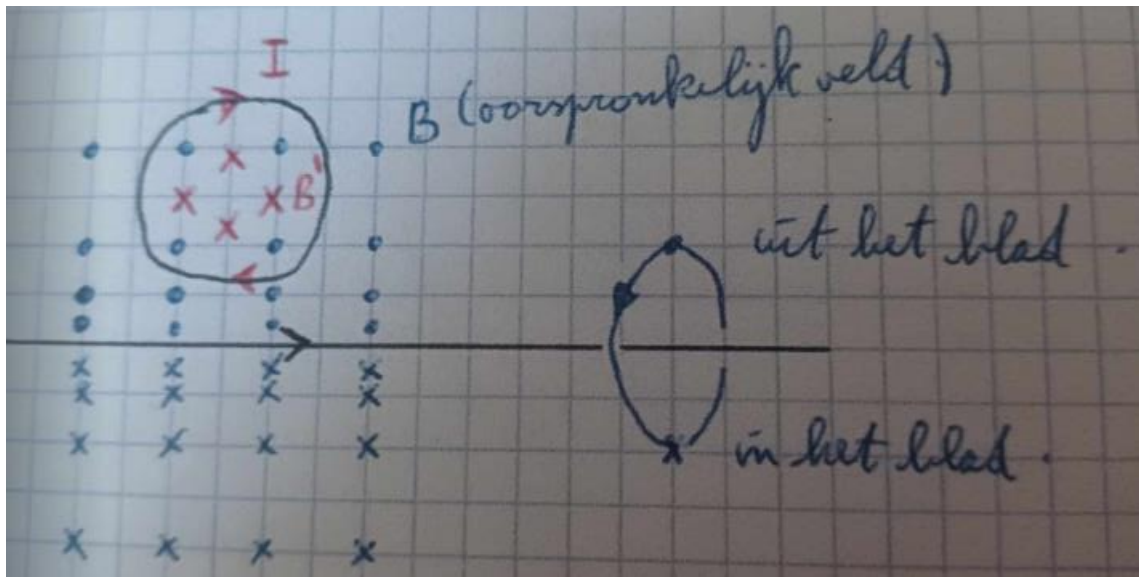 I
B (oorspronkelijk veld)
B'
uit het blad.
in het blad.